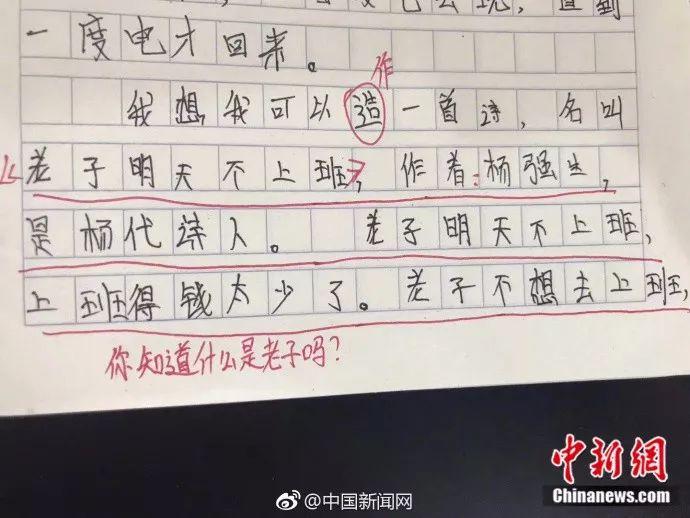 一度电才回来。
作
我想我可以造一首诗，名叫
《老子明天不上班》，作者：杨强生，
是杨代诗人。 老子明天不上班，
上班得钱太少了。老子不想去上班，
你知道什么是老子吗？
中新网
Chinanews.com
@中国新闻网